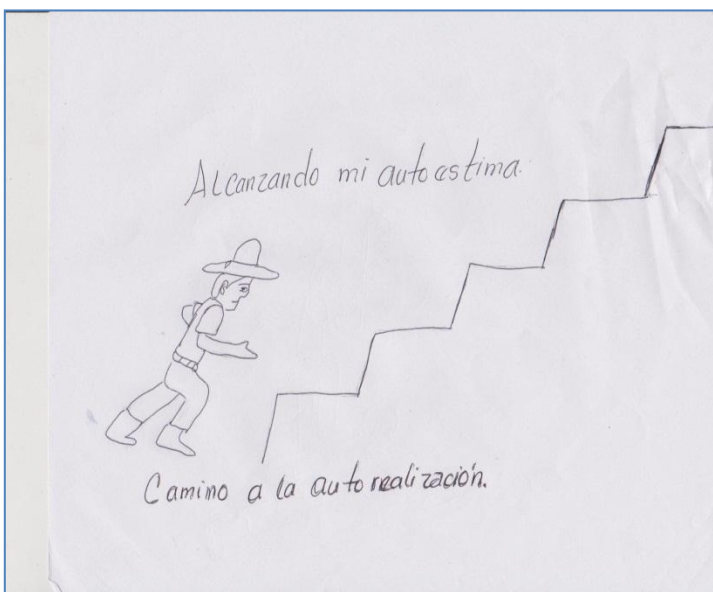 Alcanzando mi autoestima.
Camino a la autorealización.